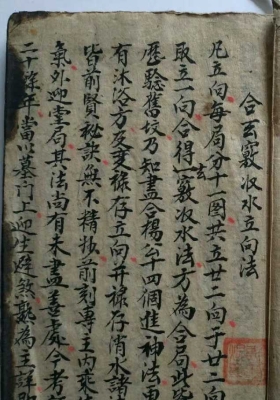 合玄竅收水立向法
凡立向每局分十一圖共五廿二向于廿二向
取立一向合得一竅收水法方為合局此
歷驗舊坟乃知盡合楊公十四個進神法
有沐浴方及文祿存立向并祿存消水諸
皆前賢秘訣無不精妙前刻專主內乘
氣外迎堂局其法尚有未盡善處今考
二十餘年當以墓門上迎生避煞為主